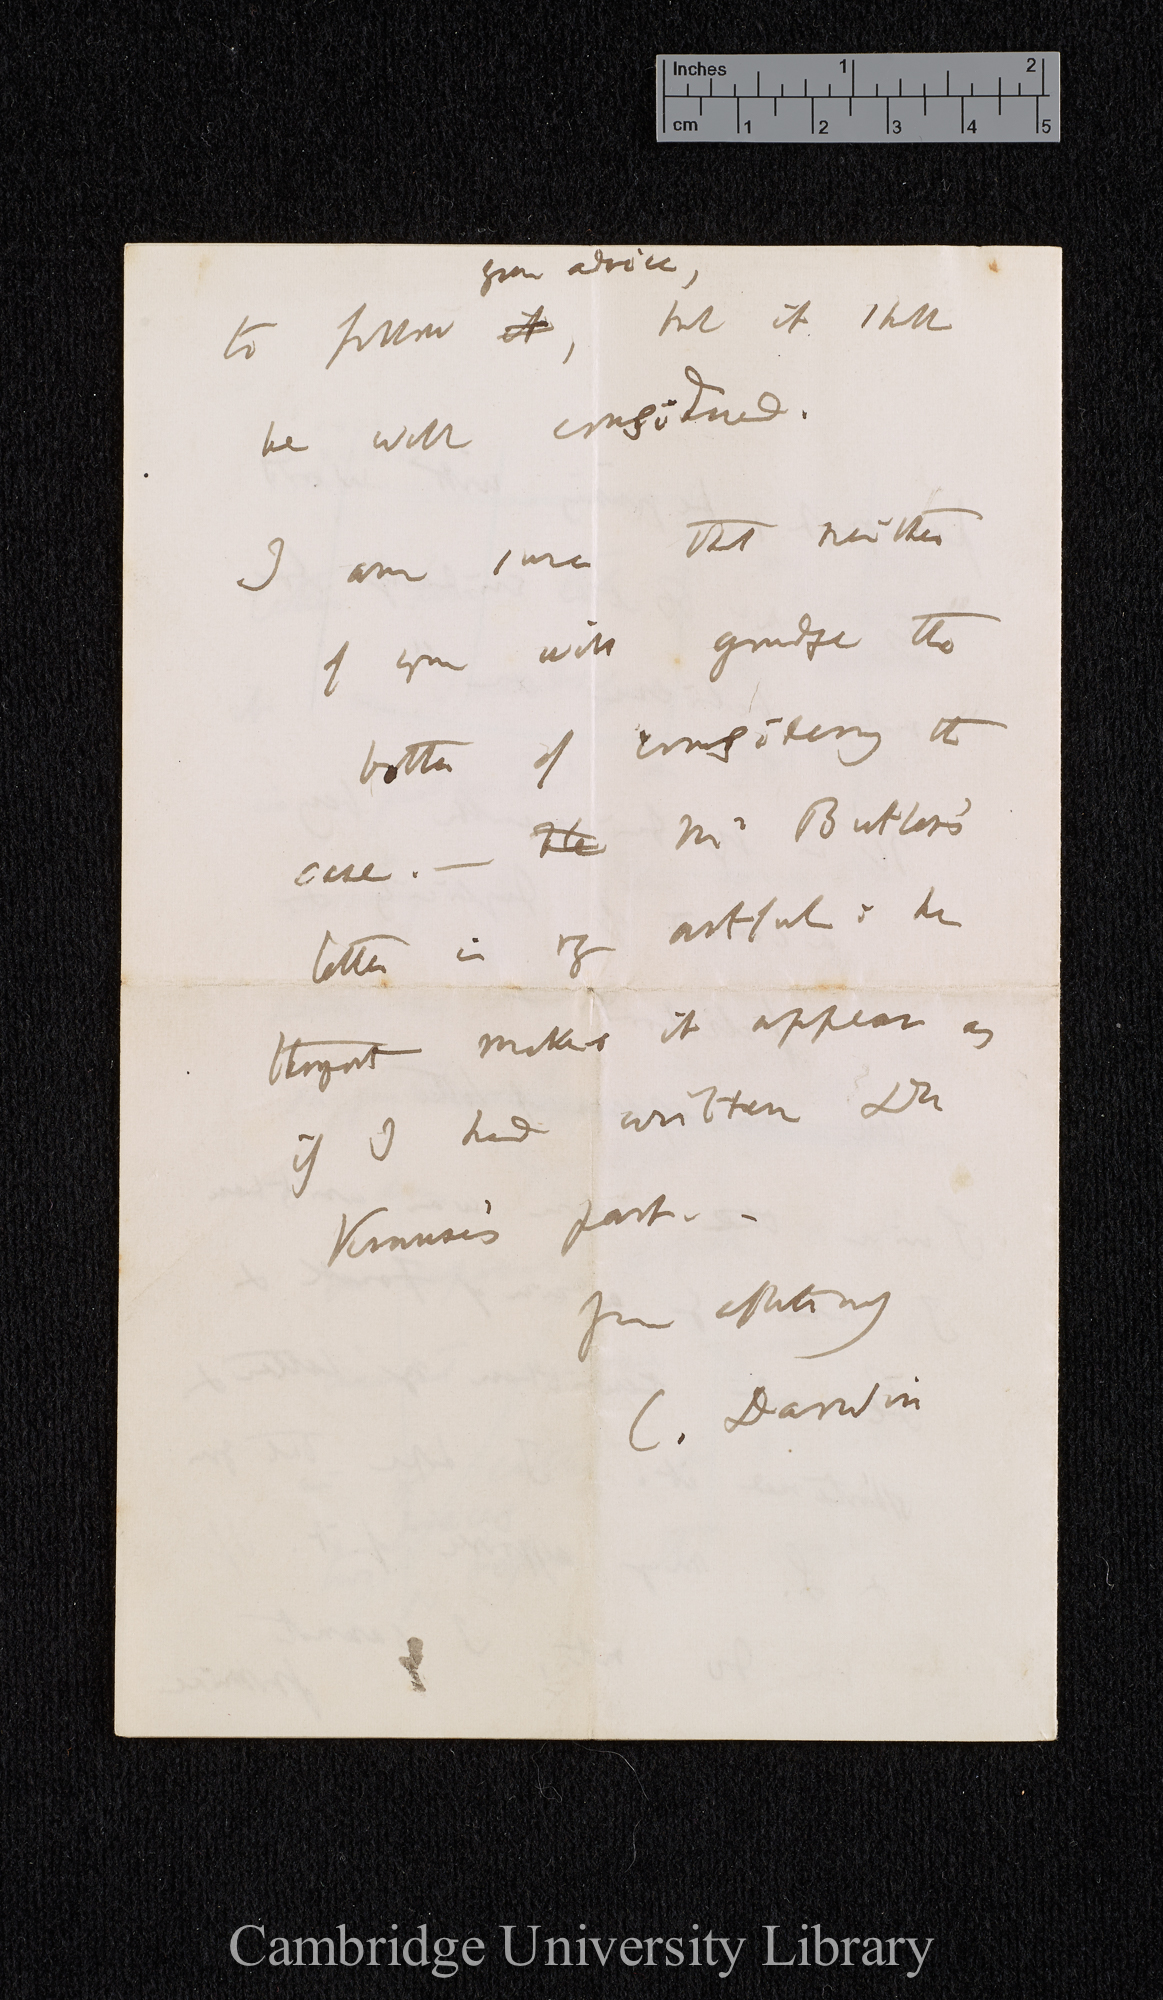 Inches 1 2
cm 1 2 3 4 5
your advice,
to follow it, but it shall
be well considered.
I am sure that neither
of you will grudge the
bother of considering the
case.— He Mr Butler's
letter is so artful: he
throughout makes it appear as
if I had written Dr
Krause's part.—
Your affectionately
C. Darwin
Cambridge University Library